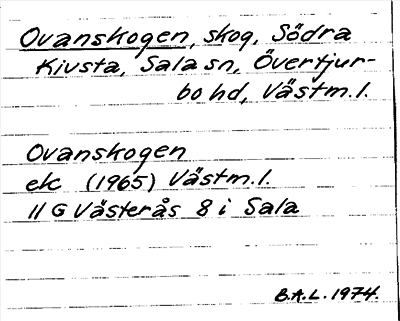 Ovanskogen, skog, Södra
Kivsta, Sala sn, Övertjur-
bo hd, Västm.l.
Ovanskogen
ek (1965) Västm.l.
11 G Västerås 8 i Sala
B.A.L. 1974.